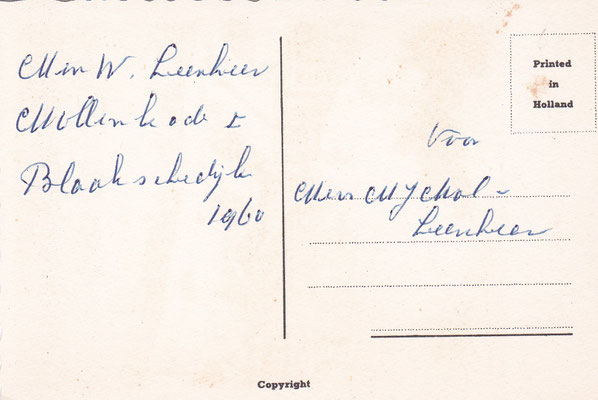 Mevr W. Leenheer
Mollenkade 1
Blaakschedijk
1960
Voor
Mevr M J Mol-
Leenheer
Printed
in
Holland
Copyright